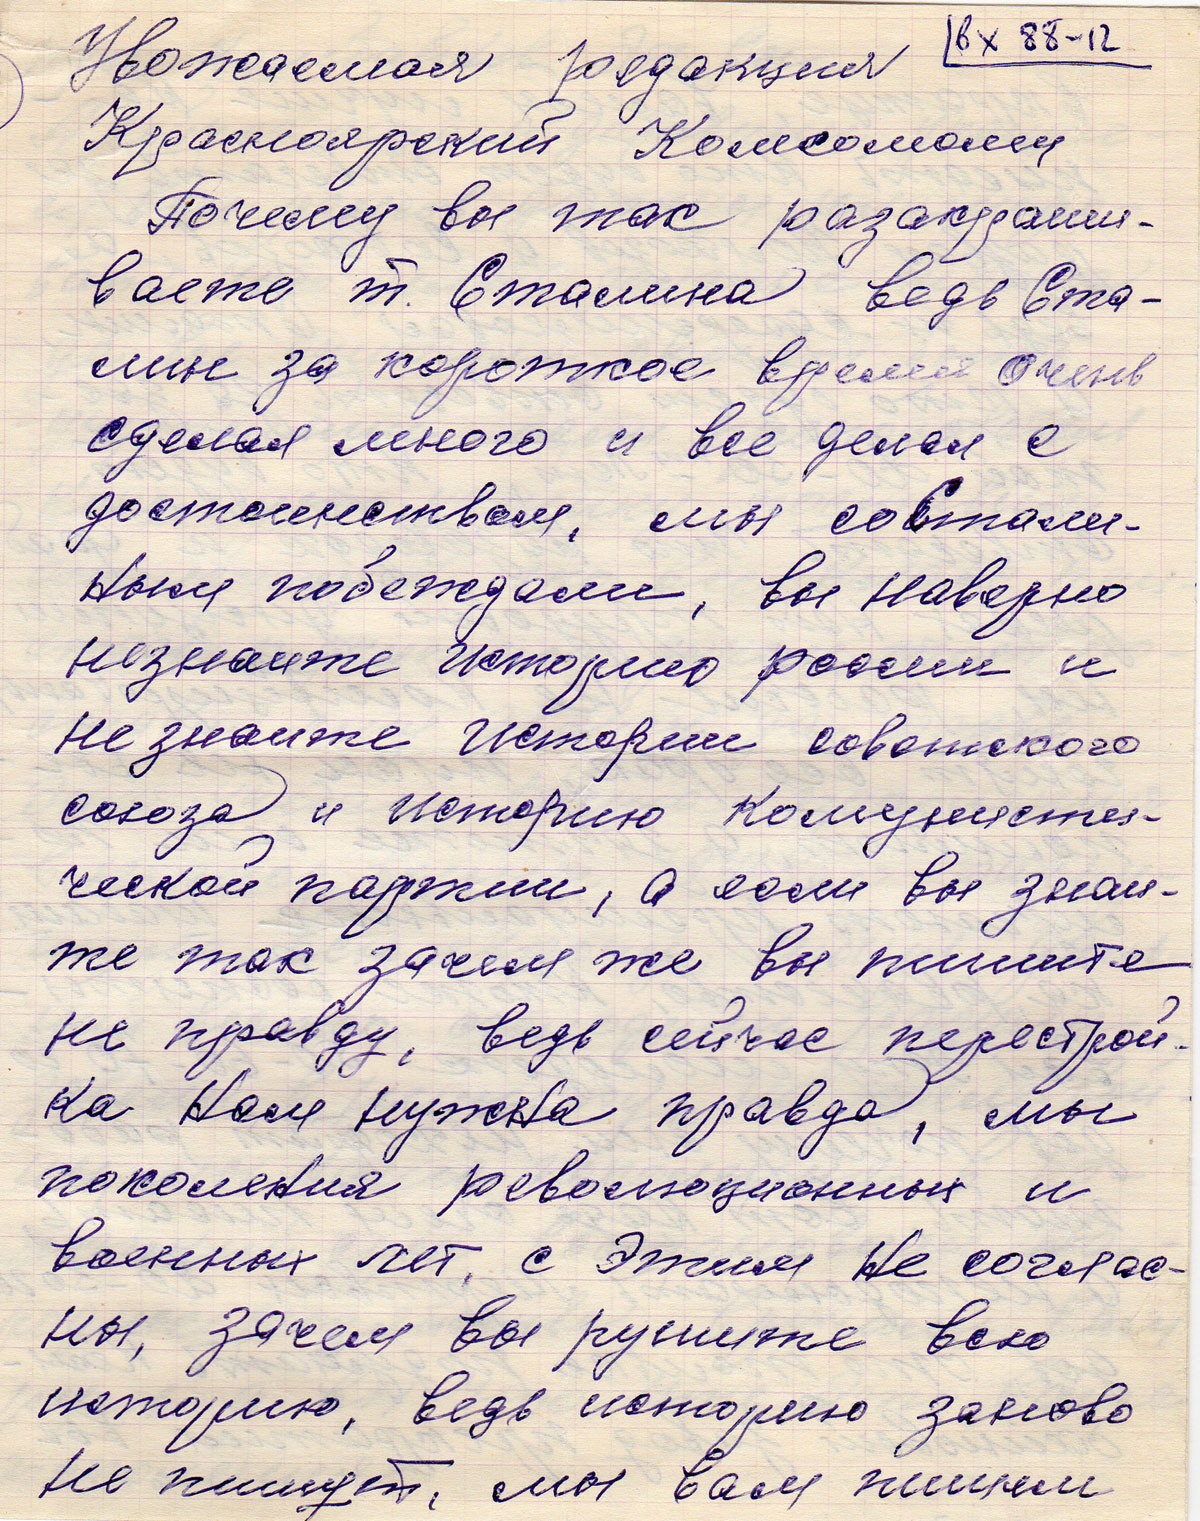 вх 88-12
Уважаемая редакция
Красноярский Комсомолец
Почему вы так разакраши-
ваете т. Сталина ведь Ста-
лин за короткое время очень
сделал много и все делал с
достоинством, мы со Стали-
ным побеждали, вы наверно
незнаите историю росии и
не знаите истории советского
союза и историю Комунисти-
ческой партии, а если вы знаи-
те так зачем же вы пишите
не правду, ведь сейчас перестрой-
ка нам нужна правда, мы
поколения революционных и
военных лет, с этим не соглас-
ны, зачем вы рушите всю
историю, ведь историю заново
не пишут, мы вам пишем